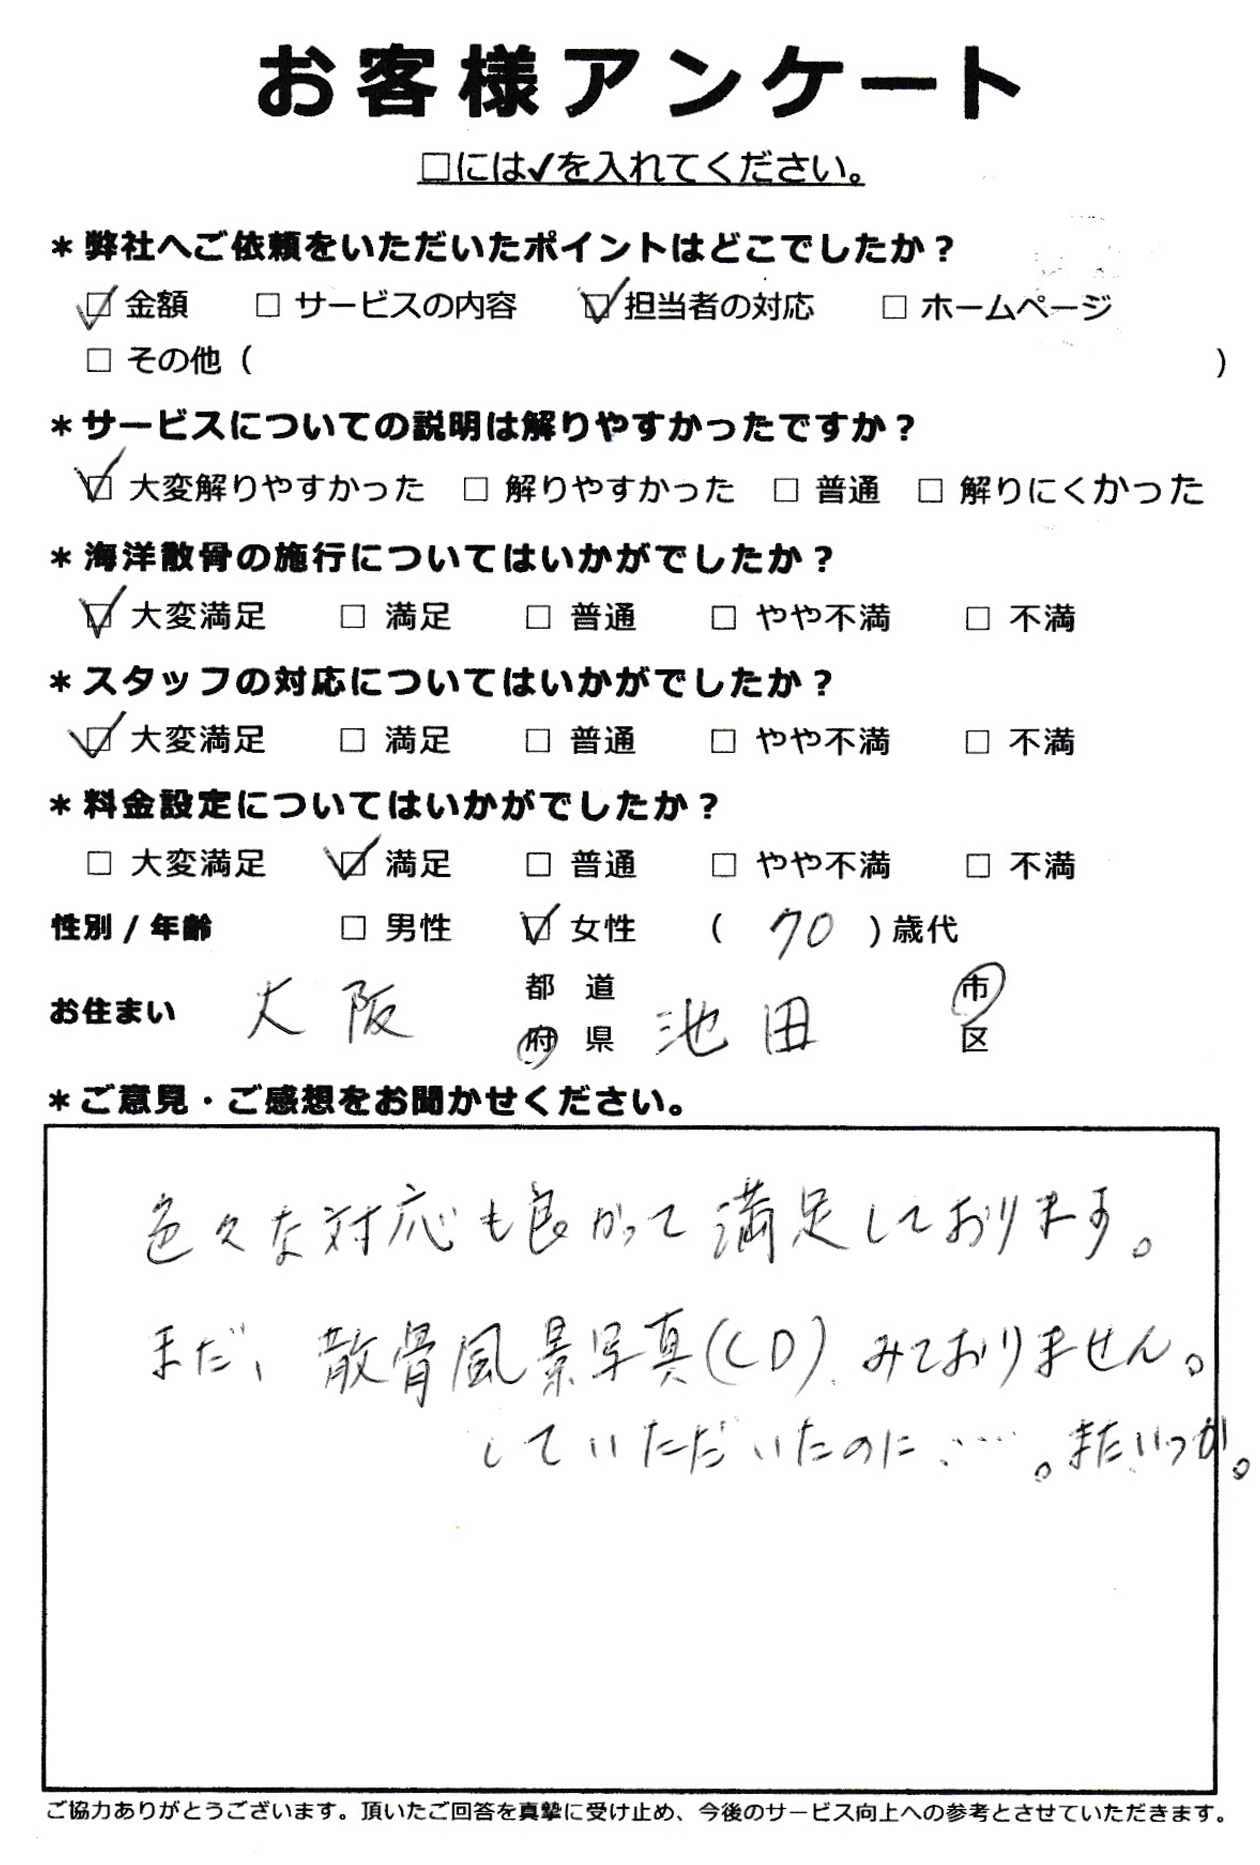 お客様アンケート
□には✓を入れてください。
＊弊社へご依頼をいただいたポイントはどこでしたか？
☑ 金額 □ サービスの内容 ☑ 担当者の対応 □ ホームページ
□ その他（ ）
＊サービスについての説明は解りやすかったですか？
☑ 大変解りやすかった □ 解りやすかった □ 普通 □ 解りにくかった
＊海洋散骨の施行についてはいかがでしたか？
☑ 大変満足 □ 満足 □ 普通 □ やや不満 □ 不満
＊スタッフの対応についてはいかがでしたか？
☑ 大変満足 □ 満足 □ 普通 □ やや不満 □ 不満
＊料金設定についてはいかがでしたか？
□ 大変満足 ☑ 満足 □ 普通 □ やや不満 □ 不満
性別 / 年齢 □ 男性 ☑ 女性 （ 70 ）歳代
お住まい 大阪 都 道 府 県 池田 市 区
＊ご意見・ご感想をお聞かせください。
色々な対応も良かって満足しております。
まだ、散骨風景写真(CD)みておりません。
していただいたのに、……。またいつか。
ご協力ありがとうございます。頂いたご回答を真摯に受け止め、今後のサービス向上への参考とさせていただきます。